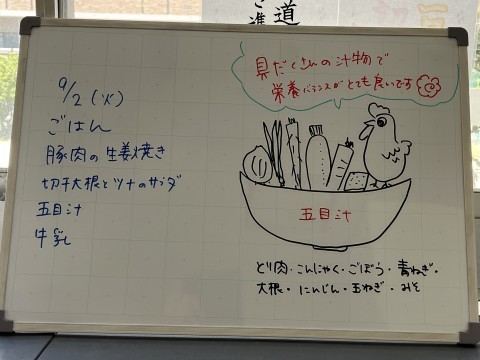 道
ご準
9/2(火)
ごはん
豚肉の生姜焼き
切干大根とツナのサラダ
五目汁
牛乳
具だくさんの汁物で
栄養バランスがとても良いです
五目汁
とり肉・こんにゃく・ごぼう・青ねぎ・
大根・にんじん・玉ねぎ・みそ